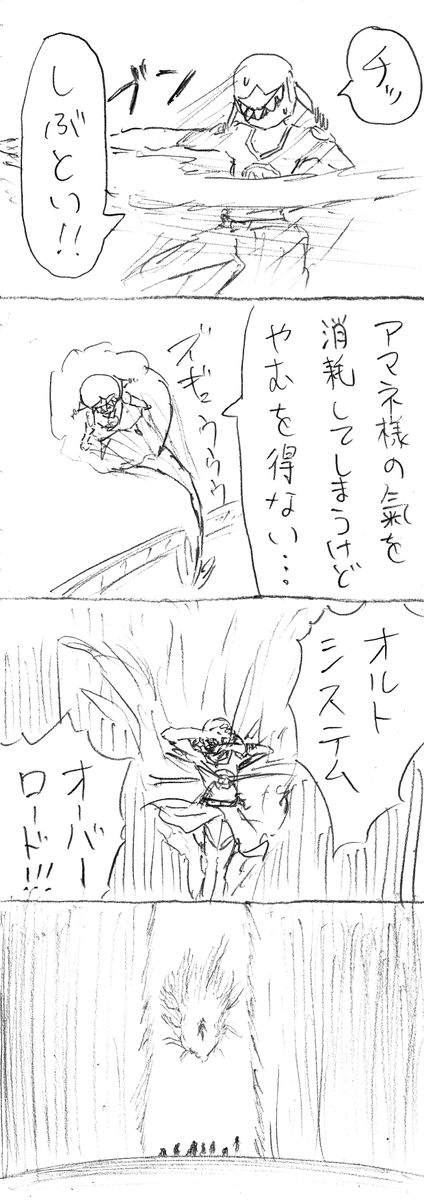 チッ
ブン
しぶとい!!
アマネ様の氣を
消耗してしまうけど
やむを得ない…
ズギュウウウ
オルト
システム
オーバー
ロード!!!